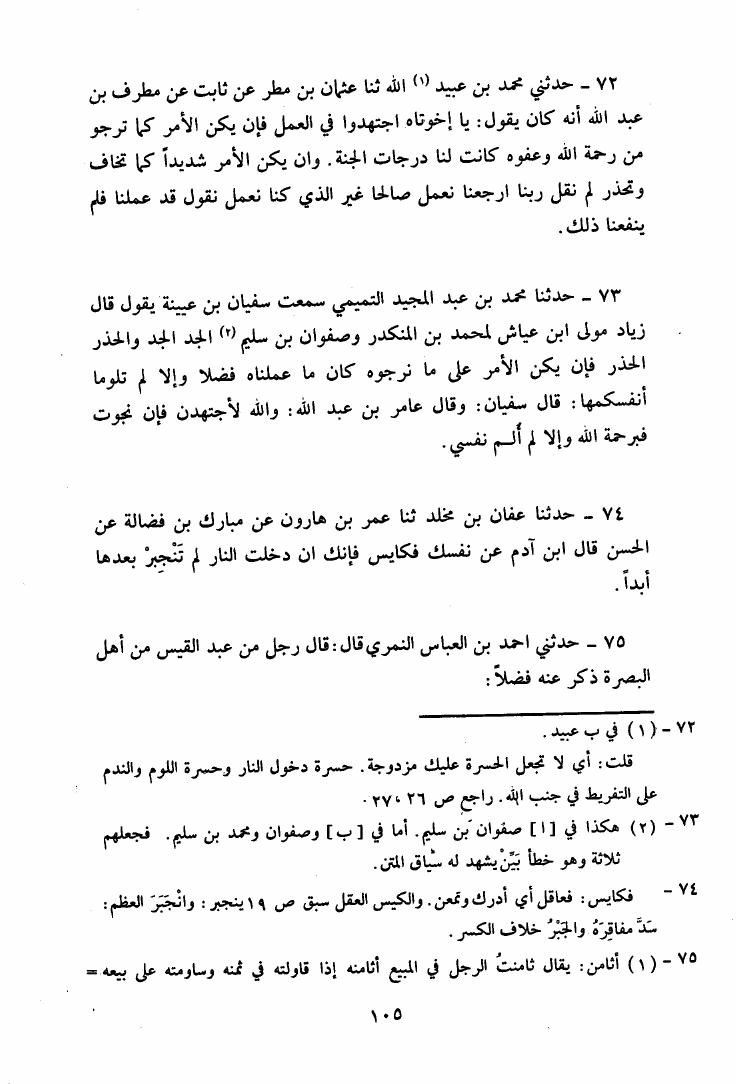 ٧٢ - حدثني محمد بن عبيد (١) الله ثنا عثمان بن مطر عن ثابت عن مطرف بن
عبد الله أنه كان يقول: يا إخوتاه اجتهدوا في العمل فإن يكن الأمر كما ترجو
من رحمة الله وعفوه كانت لنا درجات الجنة. وان يكن الأمر شديداً كما تخاف
وتحذر لم نقل ربنا ارجعنا نعمل صالحا غير الذي كنا نعمل نقول قد عملنا فلم
ينفعنا ذلك.
٧٣ - حدثنا محمد بن عبد المجيد التميمي سمعت سفيان بن عيينة يقول قال
زياد مولى ابن عياش لمحمد بن المنكدر وصفوان بن سليم (٢) الجد الجد والحذر
الحذر فإن يكن الأمر على ما نرجوه كان ما عملناه فضلا وإلا لم تلوما
أنفسكمها: قال سفيان: وقال عامر بن عبد الله: والله لأجتهدن فإن نجوت
فبرحمة الله وإلا لم أَلـم نفسي.
٧٤ - حدثنا عفان بن مخلد ثنا عمر بن هارون عن مبارك بن فضالة عن
الحسن قال ابن آدم عن نفسك فكايس فإنك ان دخلت النار لم تَنْجبِرْ بعدها
أبداً.
٧٥ - حدثني احمد بن العباس النمري قال: قال رجل من عبد القيس من أهل
البصرة ذكر عنه فضلاً:
٧٢ - (١) في ب عبيد.
قلت: أي لا تجعل الحسرة عليك مزدوجة. حسرة دخول النار وحسرة اللوم والندم
على التفريط في جنب الله. راجع ص ٢٦، ٢٧.
٧٣ - (٢) هكذا في [ا] صفوان بن سليم. أما في [ب] وصفوان ومحمد بن سليم. فجعلهم
ثلاثة وهو خطأ بَيِّنْ يشهد له سياق المتن.
٧٤ - فكايس: فعاقل أي أدرك وتمعن. والكيس العقل سبق ص ١٩ ينجبر: وانْجَبَرَ العظم:
سَدَّ مفاقِرَهُ والجَبْرُ خلاف الكسر.
٧٥ - (١) أثامن: يقال ثامنتُ الرجل في المبيع أثامنه إذا قاولته في ثمنه وساومته على بيعه =
١٠٥